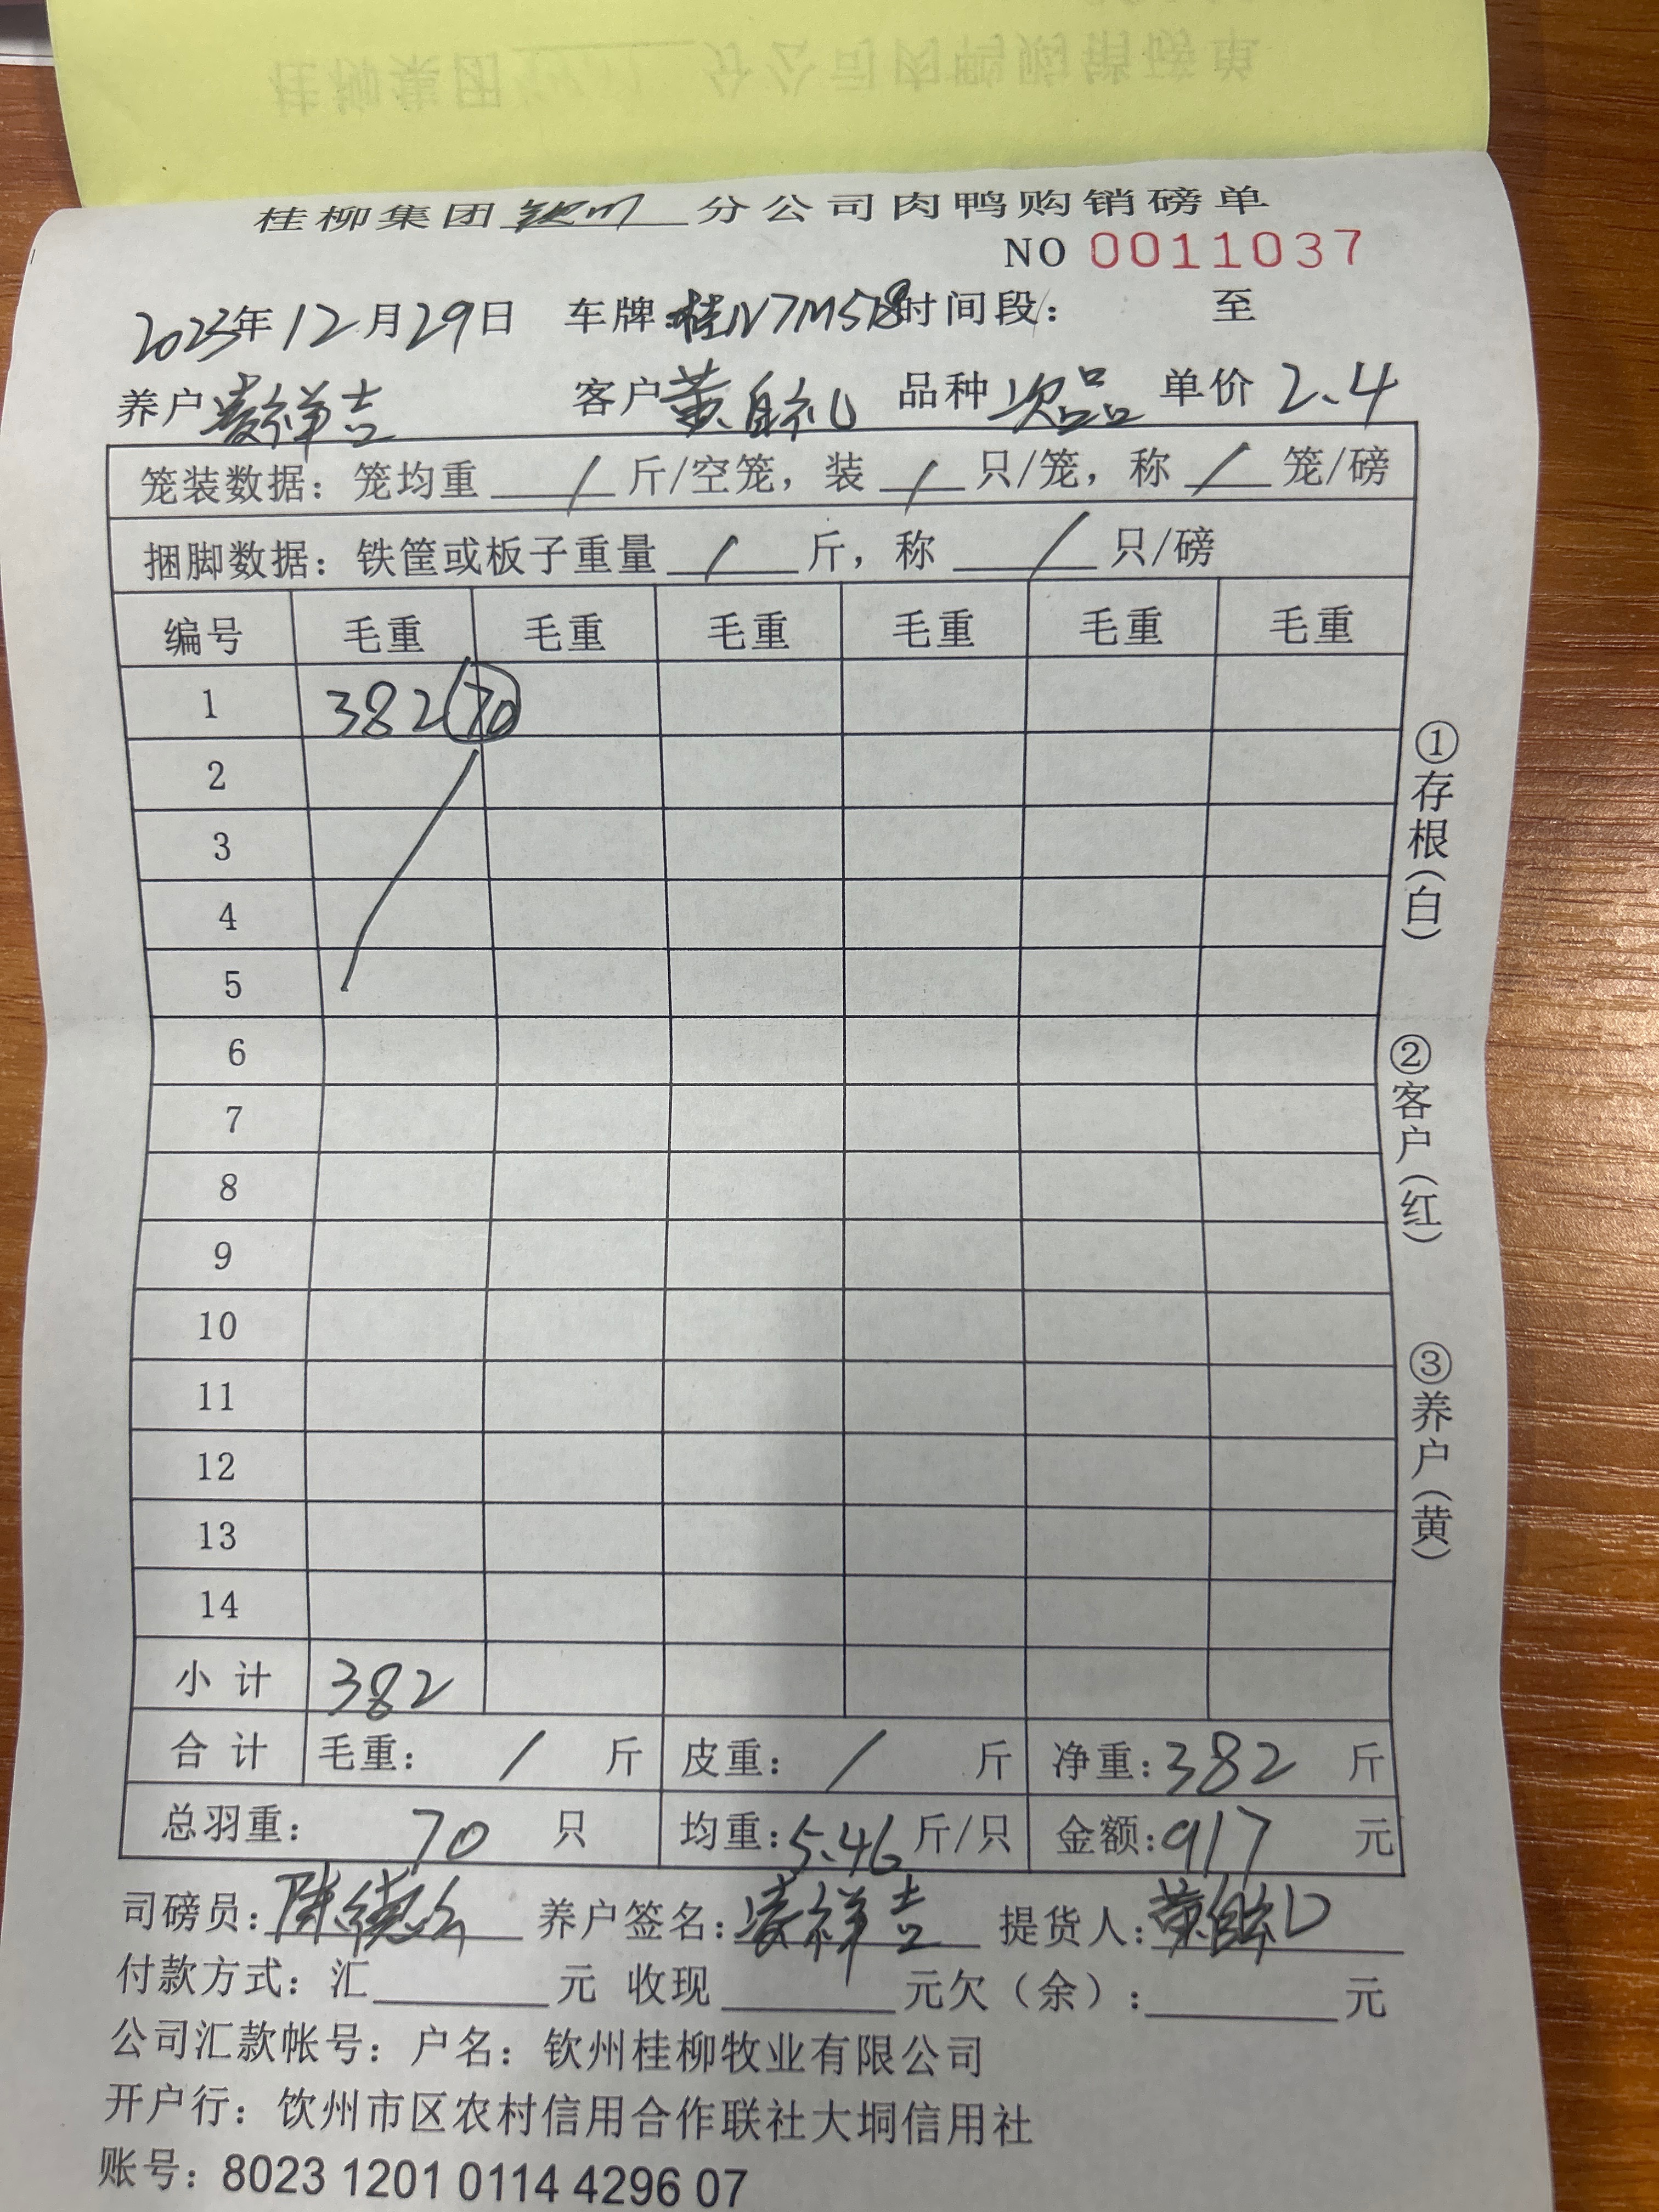 桂柳集团钦州分公司肉鸭购销磅单
NO 0011037
2023年12月29日 车牌:桂N7M518时间段: 至
养户凌祥吉 客户黄自礼 品种次品 单价2.4
笼装数据:笼均重 / 斤/空笼,装 / 只/笼,称 / 笼/磅
捆脚数据:铁筐或板子重量 / 斤,称 / 只/磅
编号 毛重 毛重 毛重 毛重 毛重 毛重
1 382 70
2
3
4
5
6
7
8
9
10
11
12
13
14
小计 382
合计 毛重: / 斤 皮重: / 斤 净重:382 斤
总羽重: 70 只 均重:5.46斤/只 金额:917 元
司磅员:陈 养户签名:凌祥吉 提货人:黄自礼
付款方式:汇 元 收现 元欠(余): 元
公司汇款帐号:户名:钦州桂柳牧业有限公司
开户行:钦州市区农村信用合作联社大垌信用社
账号:8023 1201 0114 4296 07
①存根(白)
②客户(红)
③养户(黄)